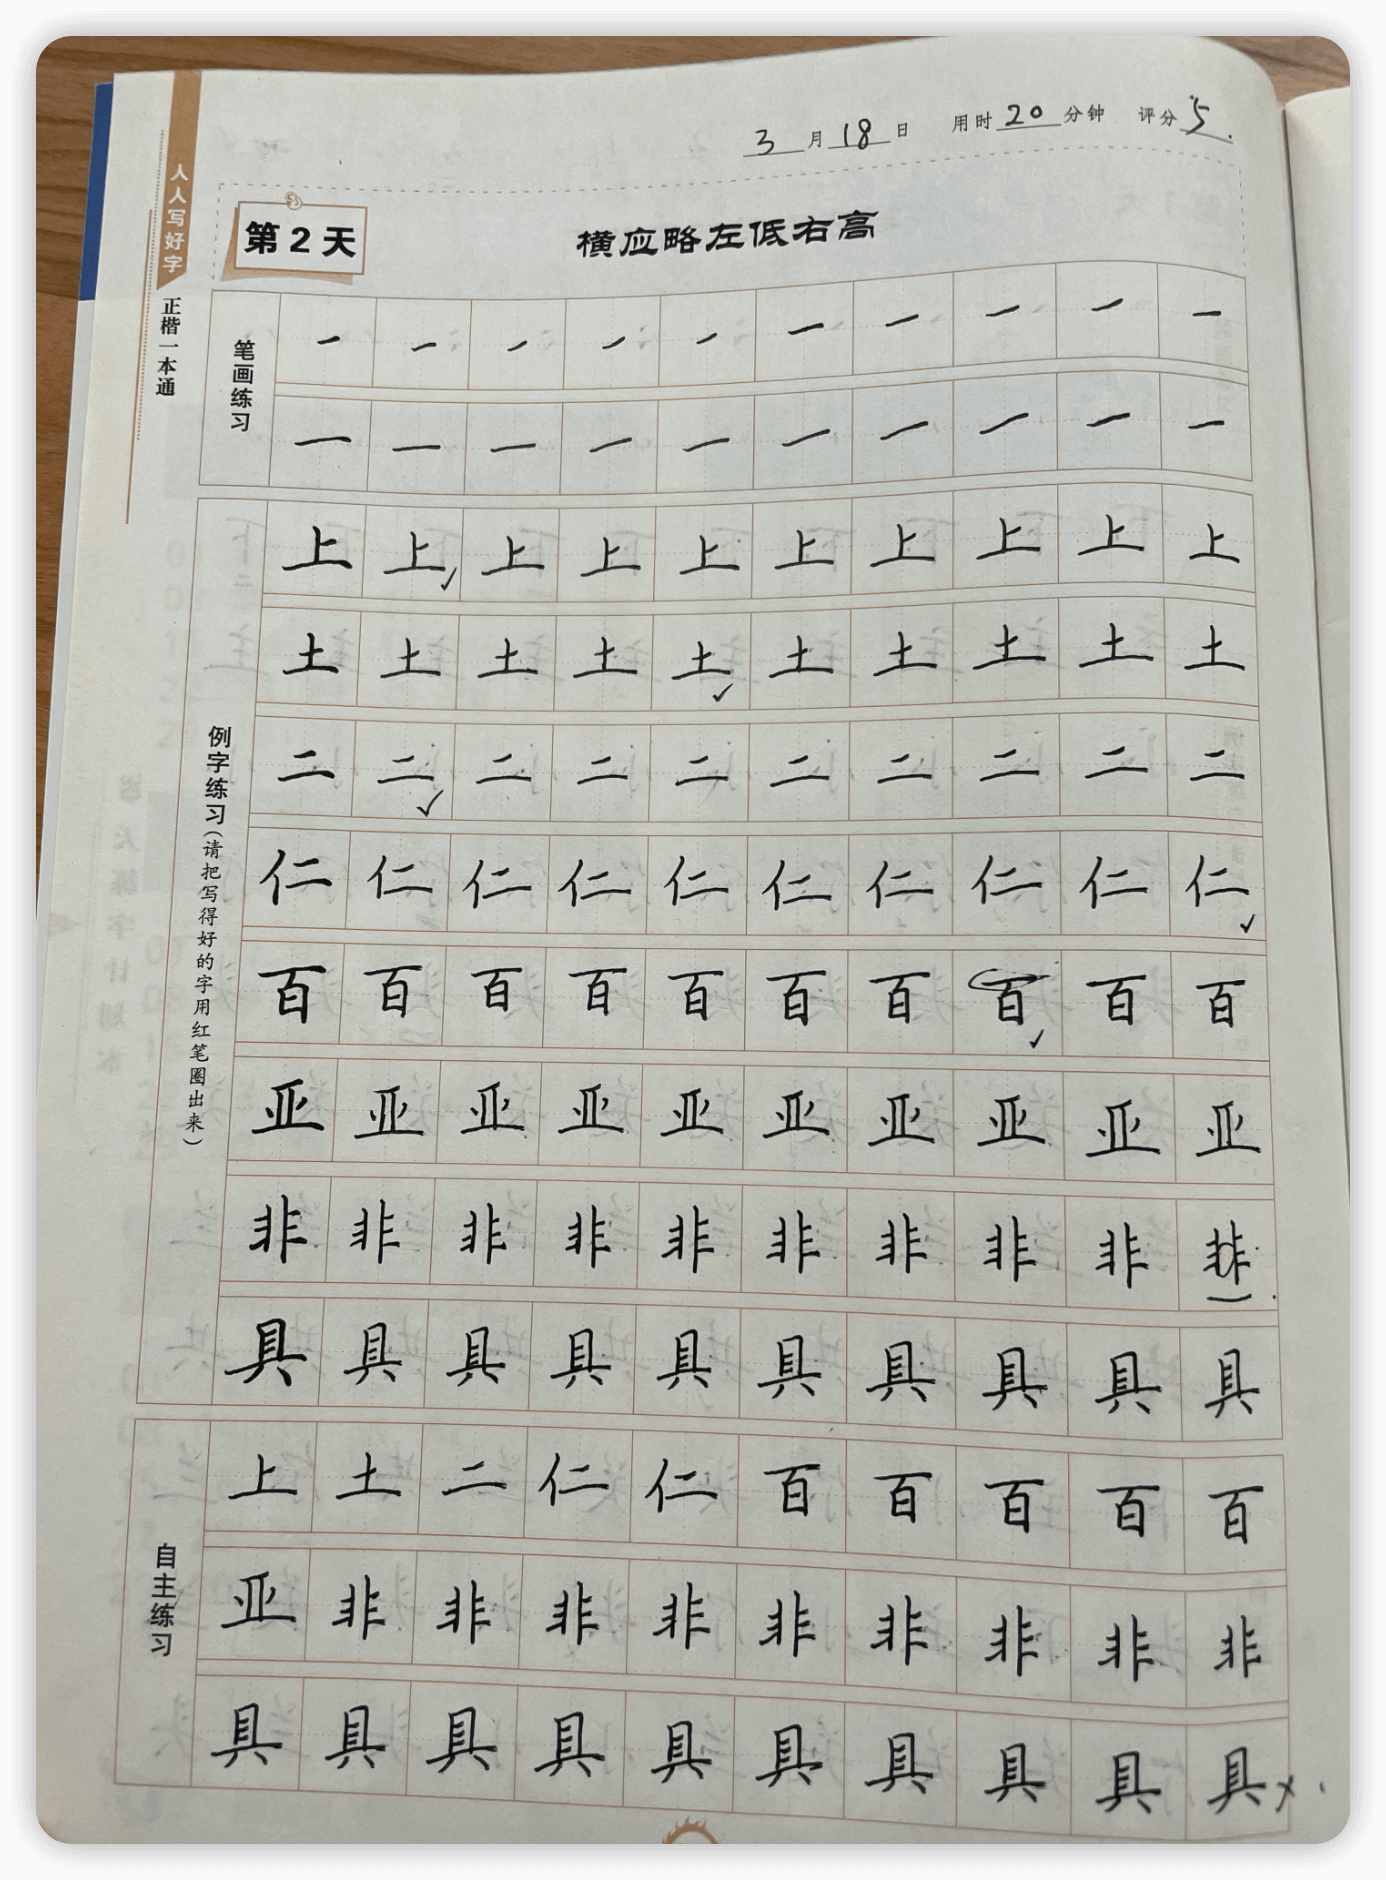 3月18日 用时20分钟 评分5.
人人写好字
正楷一本通
第2天
横应略左低右高
笔画练习
一一一一一一一一一一
一一一一一一一一一一
例字练习(请把写得好的字用红笔圈出来)
上上上上上上上上上上
土土土土土土土土土土
二二二二二二二二二二
仁仁仁仁仁仁仁仁仁仁
百百百百百百百百百百
亚亚亚亚亚亚亚亚亚亚
非非非非非非非非非非
具具具具具具具具具具
自主练习
上土二仁仁百百百百百
亚非非非非非非非非非
具具具具具具具具具具